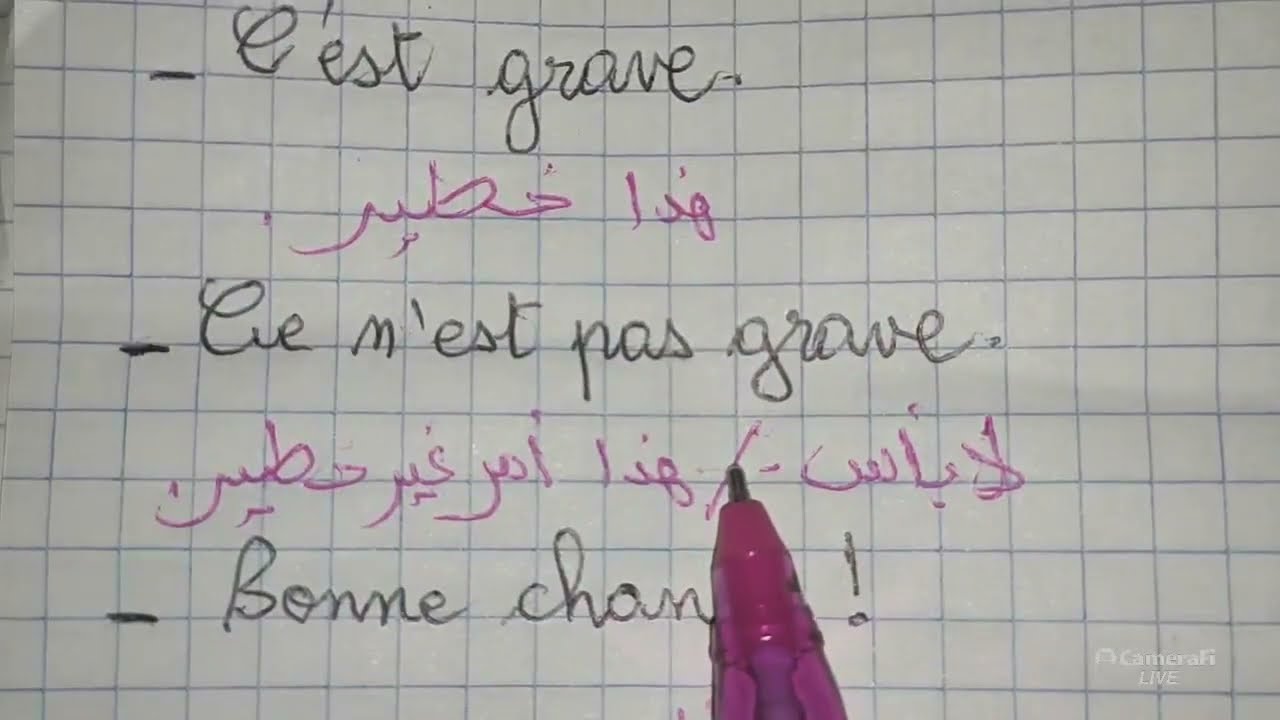 - C'est grave.
هذا خطير .
- Ce n'est pas grave.
لا بأس - / هذا أمر غير خطير.
- Bonne chan !
CameraFi
LIVE